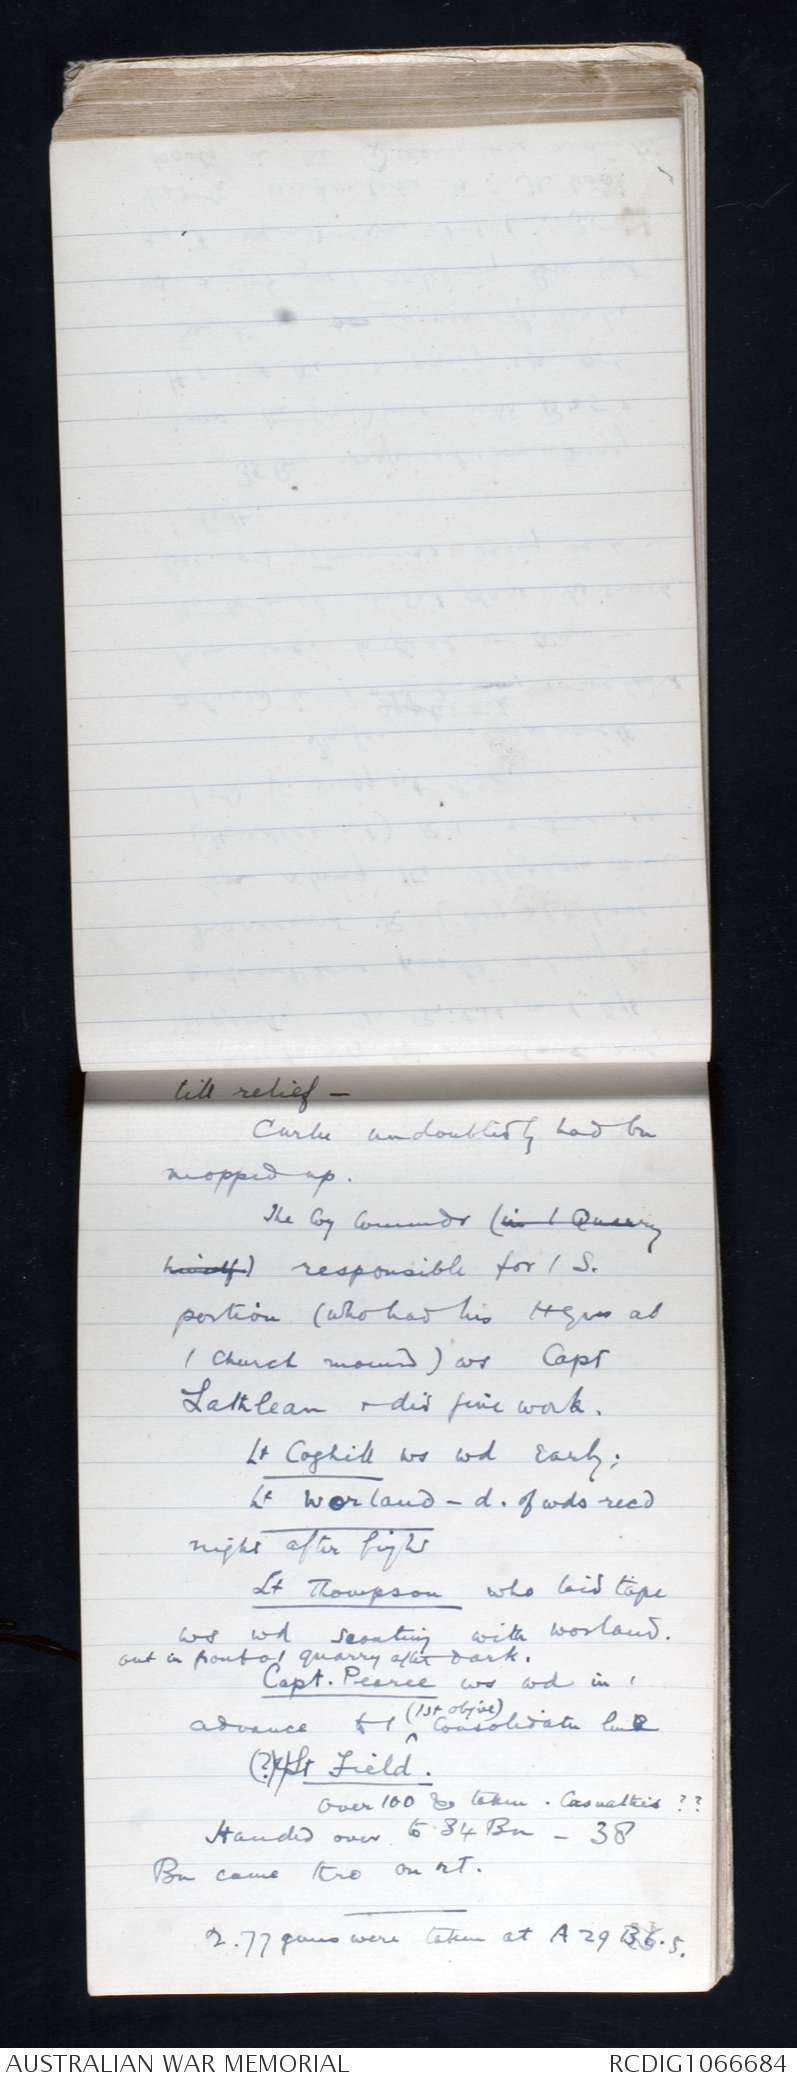 till relief –
Curlu undoubtedly had bn
mopped up.
The Coy Commdr (in / Quarry
himself) responsible for / S.
portion (who had his Hqrs at
/ church mound) ws Capt
Lathlean & did fine work.
Lt Coghill ws wd Early;
Lt Worland – d. of wds recd
night after fight
Lt Thompson who laid tape
ws wd scouting with Worland.
out in front of / quarry after dark.
Capt. Pearce ws wd in /
advance to / (1st objive) Consolidatn line
(?) Lt Field.
over 100 taken. Casualties ??
Handed over to 34 Bn – 38
Bn came thro on rt.
2.77 guns were taken at A 29 .5.
AUSTRALIAN WAR MEMORIAL
RCDIG1066684